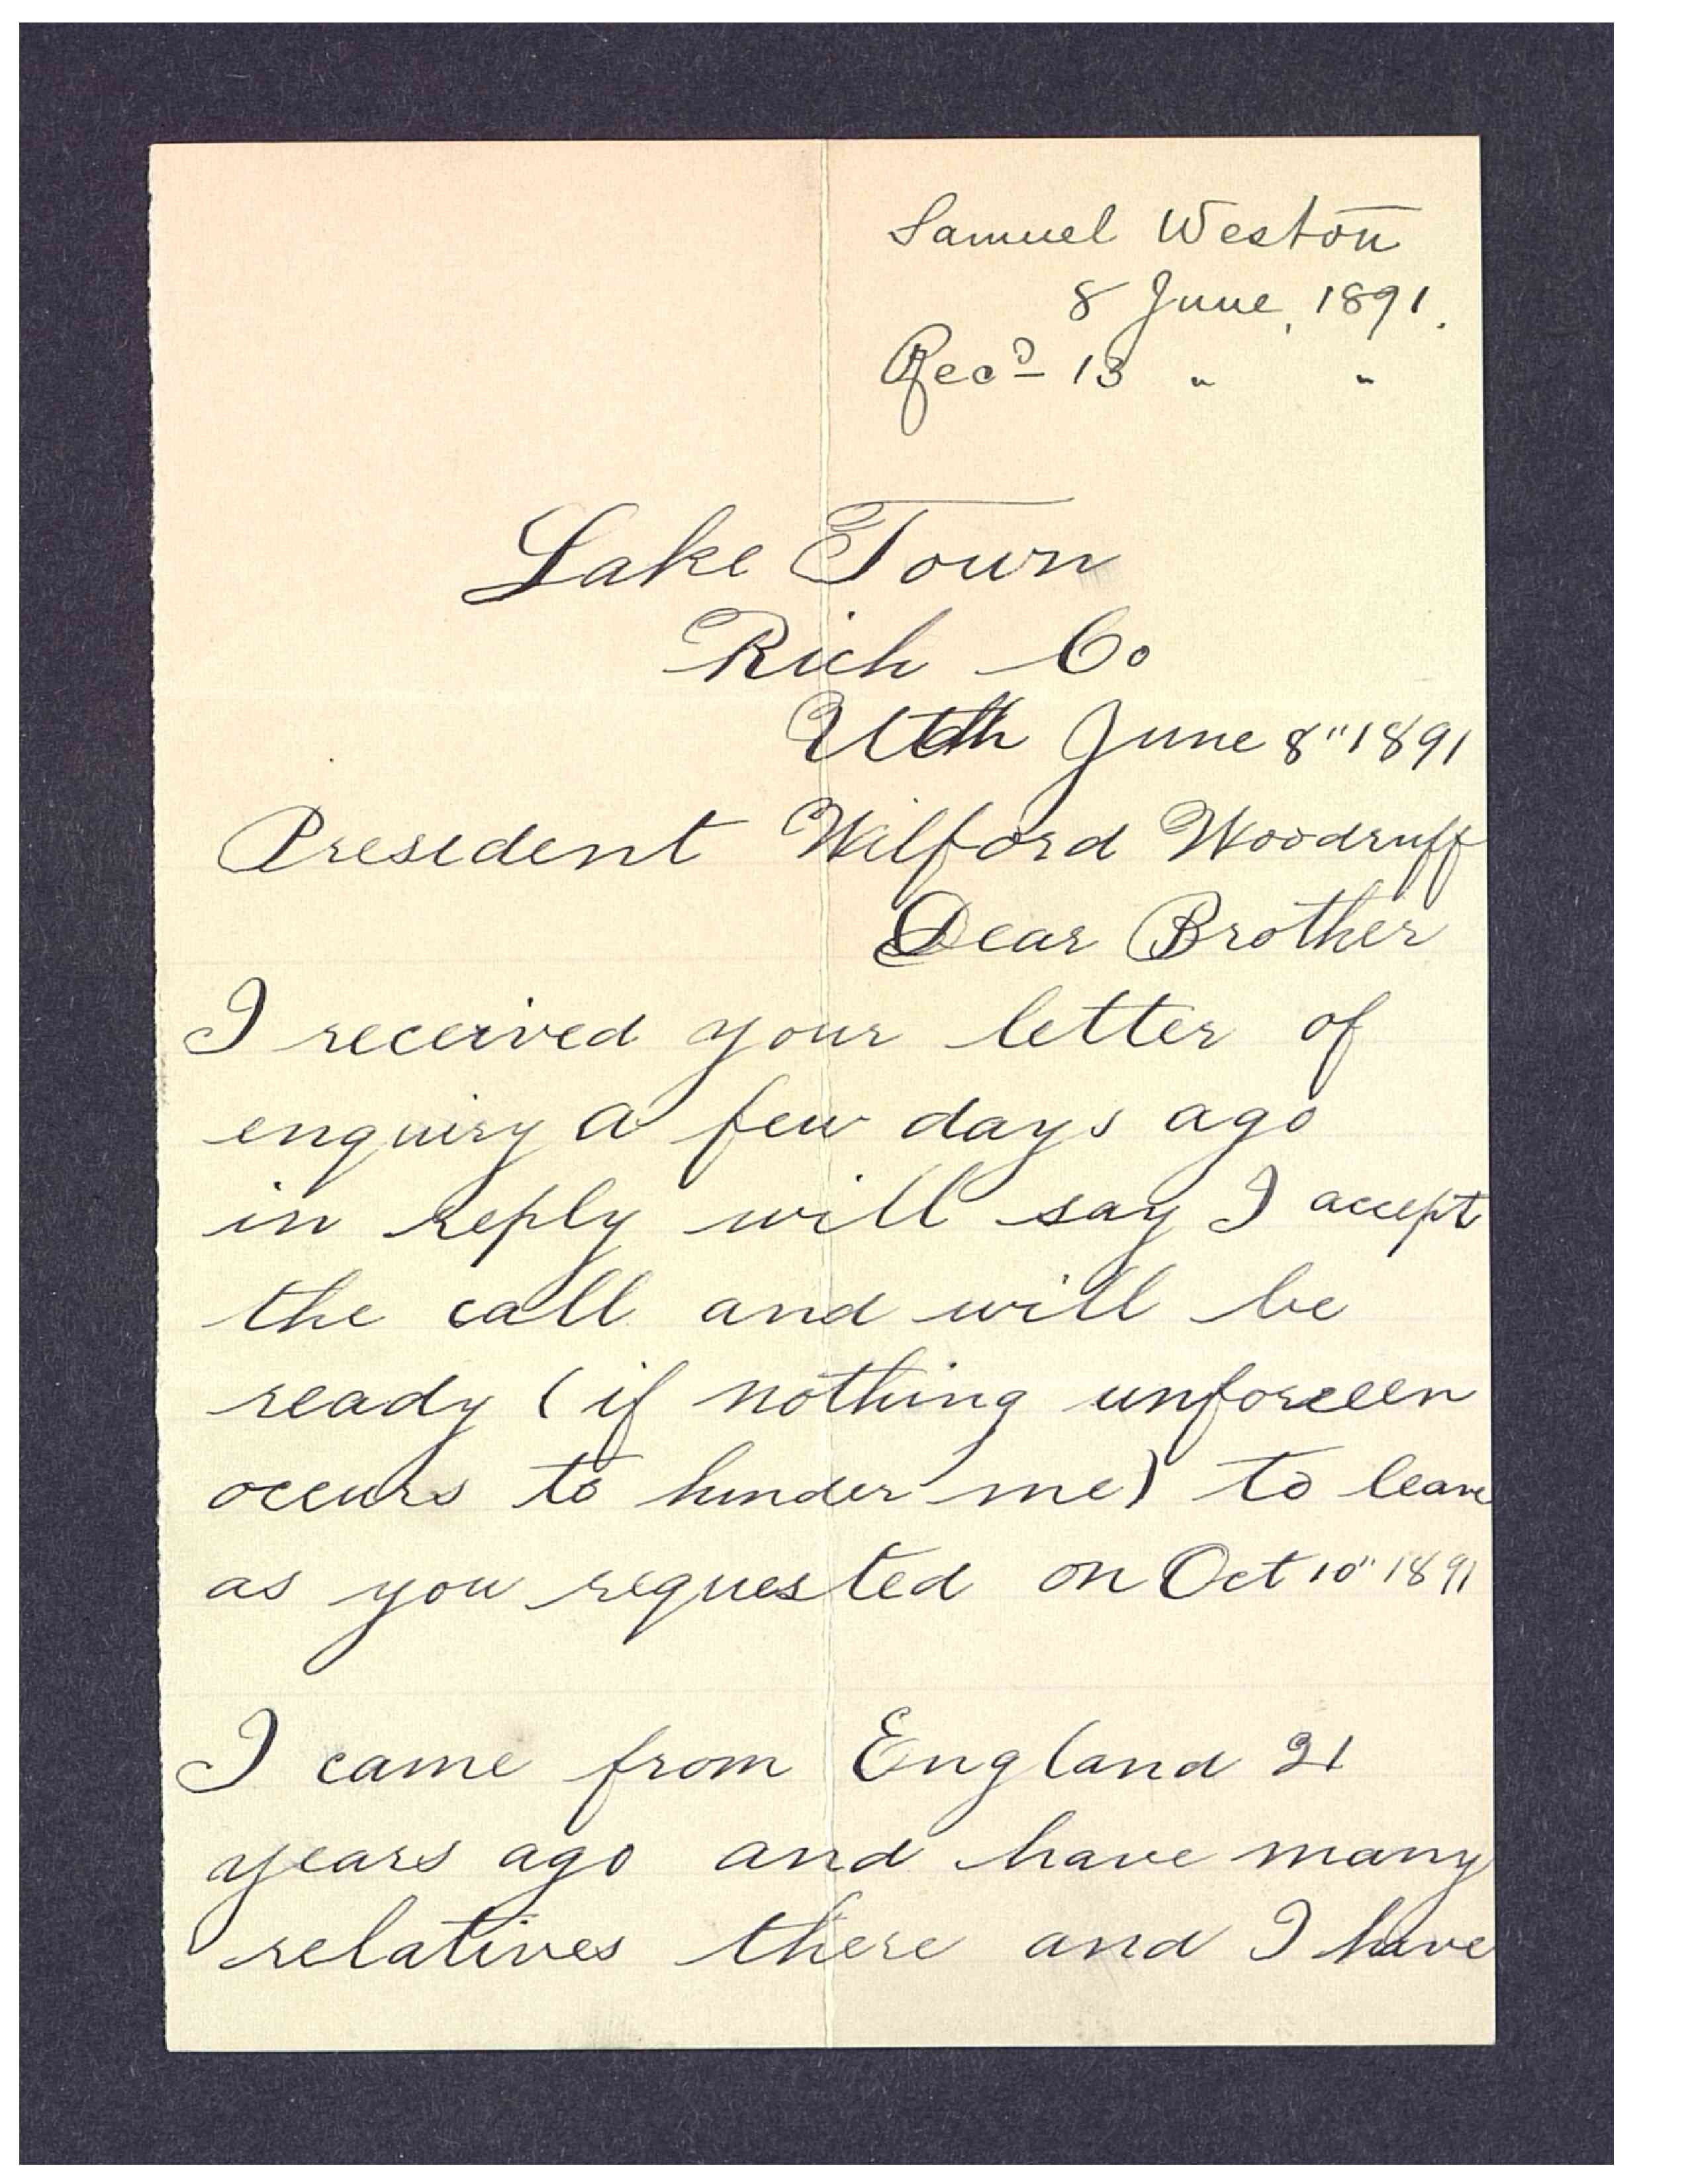 Samuel Weston
8 June, 1891.
Recd 13 " "
Lake Town
Rich Co
Utah June 8" 1891
President Wilford Woodruff
Dear Brother
I received your letter of
enquiry a few days ago
in reply will say I accept
the call and will be
ready (if nothing unforseen
occurs to hinder me) to leave
as you requested on Oct 10" 1891
I came from England 21
years ago and have many
relatives there and I have